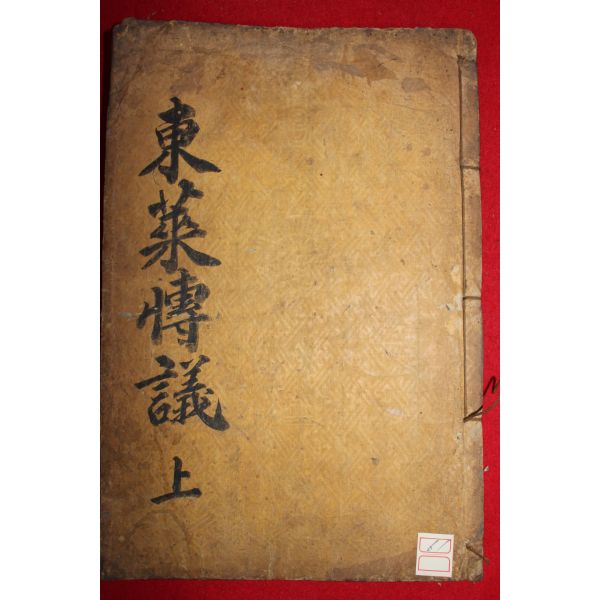 東萊愽議 上